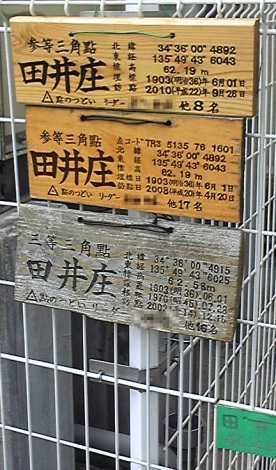 参等三角點
田井庄
北緯 34°36′00″4892
東経 135°49′43″6043
標高 62.19m
埋標 1903(明治36)年6月01日
訪點 2010(平成22)年9月26日
△點のつどい リーダー
他8名
参等三角點
田井庄
点コード TR3 5135 76 1601
北緯 34°36′00″4892
東経 135°49′43″6043
標高 62.19m
埋標日 1903(明治36)年6月1日
訪點日 2008(平成20)年4月20日
△點のつどい リーダー
他17名
三等三角點
田井庄
北緯 34°36′00″4915
東経 135°49′43″6025
標高 62.58m
1903(明36).06.01
1970(昭45).07.23
2002(平14).12.11
△點のつどい リーダー
他16名
田